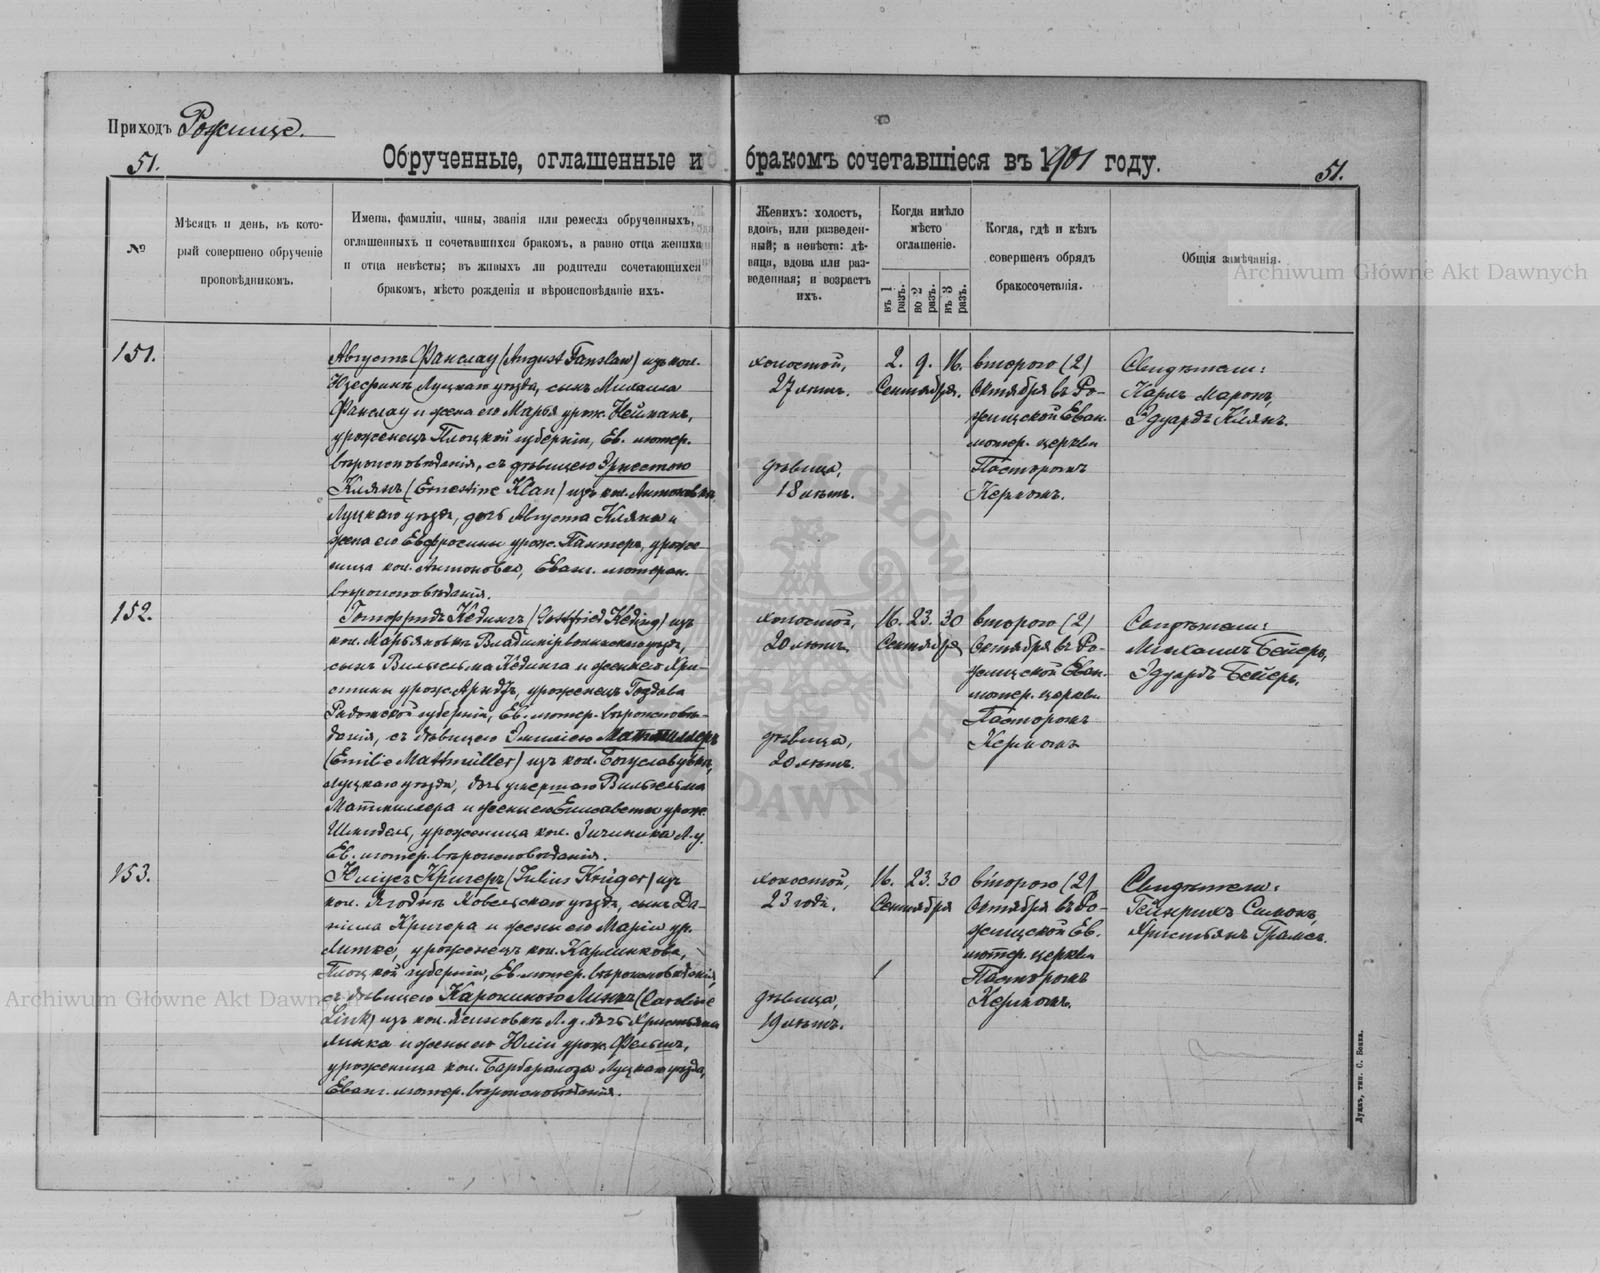 Приходъ Рожище.
51.
Обрученные, оглашенные и бракомъ сочетавшіеся въ 1901 году.
51.
№
Мѣсяцъ и день, въ кото-
рый совершено обрученіе
проповѣдникомъ.
Имена, фамиліи, чины, званія или ремесла обрученныхъ,
оглашенныхъ и сочетавшихся бракомъ, а равно отца жениха
и отца невѣсты; въ живыхъ ли родители сочетающихся
бракомъ, мѣсто рожденія и вѣроисповѣданіе ихъ.
Женихъ: холостъ,
вдовъ, или разведен-
ный; а невѣста: дѣ-
вица, вдова или раз-
веденная; и возрастъ
ихъ.
Когда имѣло
мѣсто
оглашеніе.
въ 1 разъ.
во 2 разъ.
въ 3 разъ.
Когда, гдѣ и кѣмъ
совершенъ обрядъ
бракосочетанія.
Общія замѣчанія.
Archiwum Główne Akt Dawnych
151.
Августъ Фанслау (August Fanslau) изъ кол.
Юзефинъ Луцкаго уѣзда, сынъ Михаила
Фанслау и жена его Марья урож. Нейманъ,
уроженецъ Плоцкой губерніи, Ев. лютер.
вѣроисповѣданія, съ дѣвицею Эрнестою
Клянъ (Ernestine Klan) изъ кол. Антоновка
Луцкаго уѣзда, дочь Августа Кляна и
жена его Евфросины урож. Пантеръ, уроже-
ница кол. Антоновка, Еванг. лютеран.
вѣроисповѣданія.
холостой,
27 лѣтъ.
дѣвица,
18 лѣтъ.
2. 9. 16.
Сентября.
второго (2)
Октября въ Ро-
жищской Еван.
лютер. церкви
Пасторомъ
Керномъ.
Свидѣтели:
Карлъ Марокъ,
Эдуардъ Клянъ.
152.
Готфридъ Кёдингъ (Gottfried Köding) изъ
кол. Марьяновкѣ Владимірволынскаго уѣзда,
сынъ Вильгельма Кёдинга и жены его Хри-
стины урож. Арндтъ, уроженецъ Гоздава
Радомской губерніи, Ев. лютер. вѣроисповѣ-
данія, съ дѣвицею Эмиліею Матмиллеръ
(Emilie Mattmüller) изъ кол. Богуславувка,
Луцкаго уѣзда, дочь умершаго Вильгельма
Матмиллера и жены его Елисаветы урож.
уроженица кол. Л. у.
Ев. лютер. вѣроисповѣданія.
холостой,
20 лѣтъ.
дѣвица,
20 лѣтъ.
16. 23. 30
Сентября,
второго (2)
Октября въ Ро-
жищской Еван.
лютер. церкви
Пасторомъ
Керномъ
Свидѣтели:
Михаилъ Бейеръ,
Эдуардъ Бейеръ.
153.
Юліусъ Кригеръ (Julius Krüger) изъ
кол. Ягодня Ковельскаго уѣзда, сынъ Да-
ніила Кригера и жены его Маріи ур.
Литке, уроженецъ кол. Карлинкова,
Плоцкой губерніи, Ев. лютер. вѣроисповѣданія,
съ дѣвицею Каролиною Линкъ (Caroline
Link) изъ кол. Ясиновкѣ Л. у. дочь Христьяна
Линка и жены его Юліи урож. Фельшъ,
уроженица кол. Луцкаго уѣзда,
Еванг. лютер. вѣроисповѣданія.
холостой,
23 года.
дѣвица,
19 лѣтъ.
16. 23. 30
Сентября
второго (2)
Октября въ Ро-
жищской Ев.
лютер. церкви
Пасторомъ
Керномъ.
Свидѣтели:
Гейнрихъ Симонъ,
Христьянъ Грамсъ.
Archiwum Główne Akt Dawnych
Луцкъ, тип. С. Бокса.